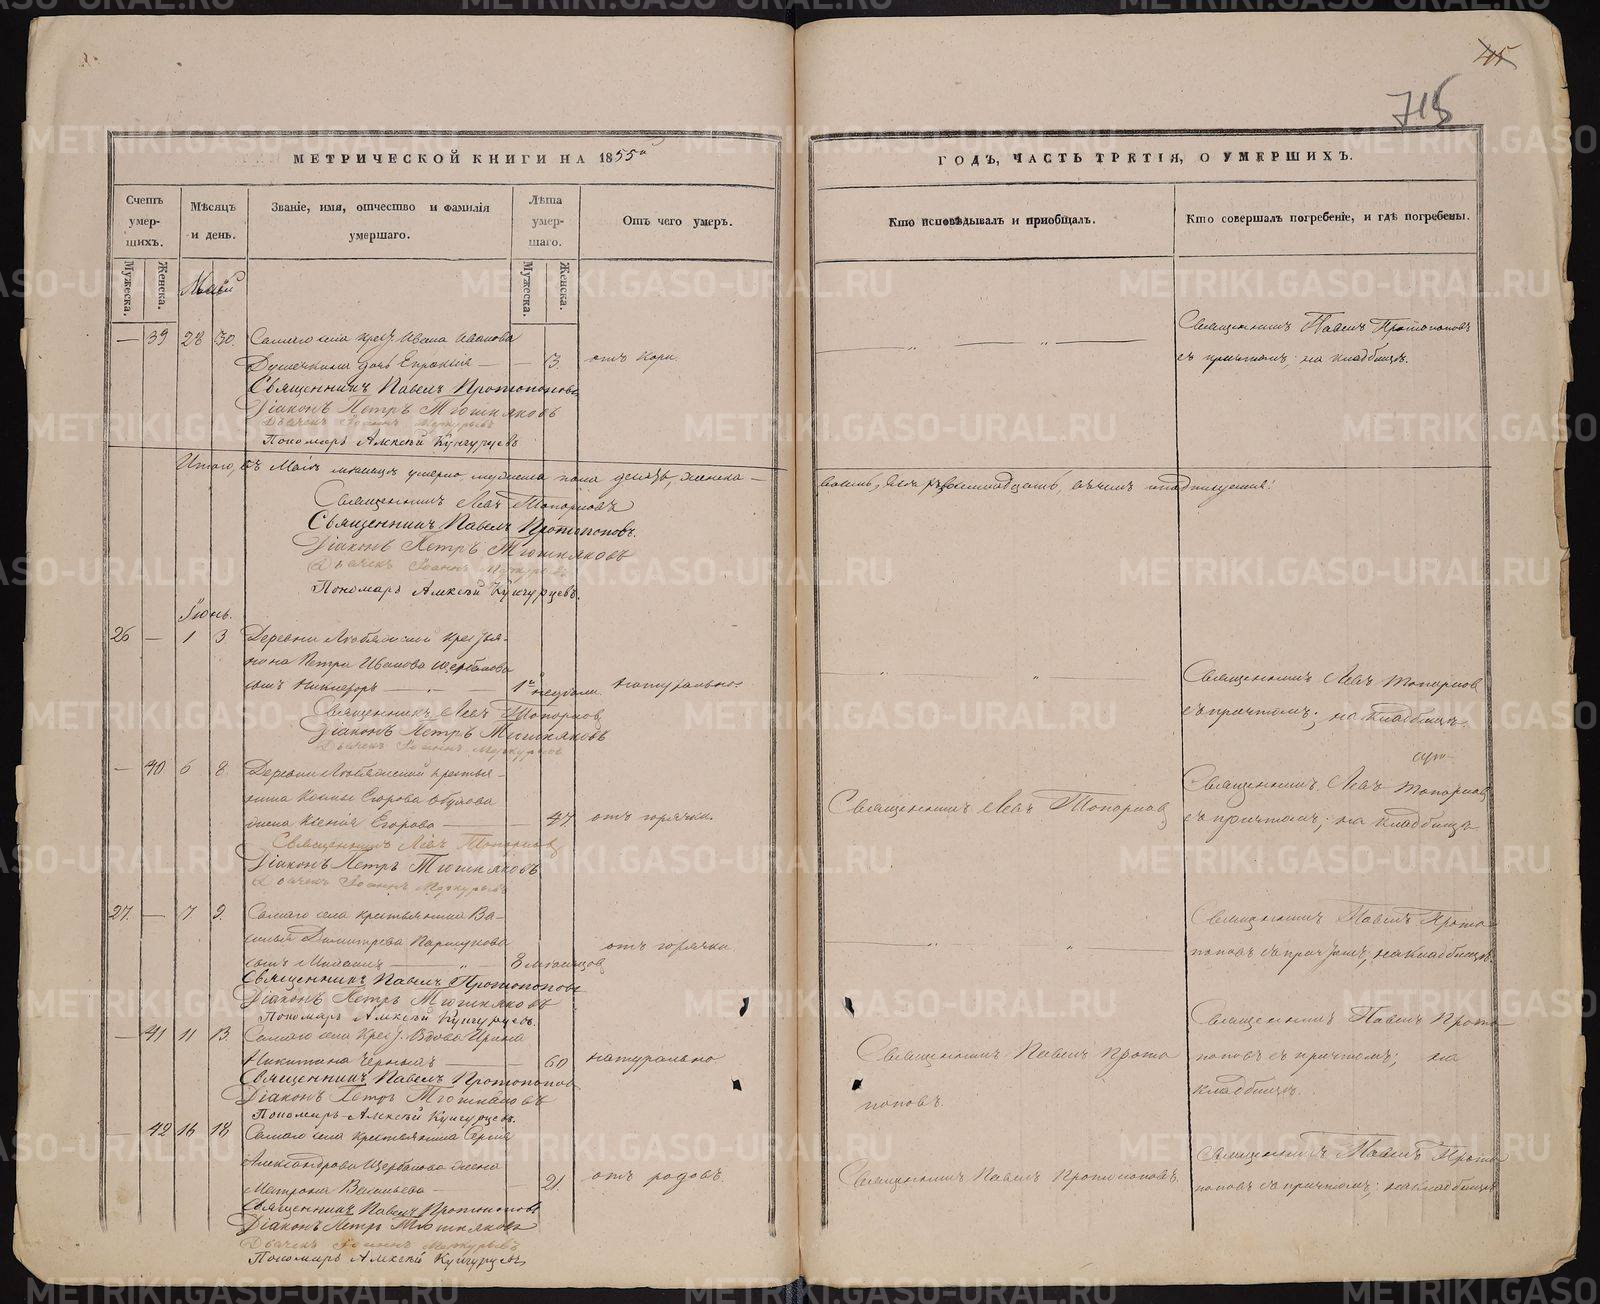 715
МЕТРИЧЕСКОЙ КНИГИ НА 1855й
ГОДЪ, ЧАСТЬ ТРЕТІЯ, О УМЕРШИХЪ.
Счетъ умершихъ.
Мужеска.
Женска.
Мѣсяцъ и день.
Званіе, имя, отчество и фамилія умершаго.
Лѣта умершаго.
Мужеска.
Женска.
Отъ чего умеръ.
Кто исповѣдывалъ и пріобщалъ.
Кто совершалъ погребеніе, и гдѣ погребены.
Май
— 39 28 30. Самаго села Крест. Ивана Иванова
дочь Евпраксія — 3. отъ кори.
Священникъ Павелъ Протопоповъ
съ причтомъ; на кладбищѣ.
Священникъ Павелъ Протопоповъ
Діаконъ Петръ Тюшняковъ
Дьячекъ Іоаннъ Меркурьевъ
Пономарь Алексѣй Кунгурцевъ
Итого, въ Маіѣ мѣсяцѣ умерло мужеска пола девять, женска —
Священникъ Левъ Топорковъ
Священникъ Павелъ Протопоповъ.
Діаконъ Петръ Тюшняковъ
Дьячекъ Іоаннъ Меркурьевъ
Пономарь Алексѣй Кунгурцевъ.
Іюнь.
26 — 1 3 Деревни крестья-
нина Петра Иванова Щербакова
сынъ Никифоръ — натурально.
Священникъ Левъ Топорковъ
съ причтомъ; на кладбищѣ.
Священникъ Левъ Топорковъ
Діаконъ Петръ Тюшняковъ
Дьячекъ Іоаннъ Меркурьевъ
— 40. 6 8. Деревни крестья-
нина Егорова
жена Ксенія Егорова — 47. отъ горячки.
Священникъ Левъ Топорковъ
Священникъ Левъ Топорковъ
съ причтомъ; на кладбищѣ
Священникъ Левъ Топорковъ
Діаконъ Петръ Тюшняковъ
Дьячекъ Іоаннъ Меркурьевъ
27. — 7 9. Самаго села крестьянина Ва-
силья Димитрева
сынъ — 8 мѣсяцовъ отъ горячки
Священникъ Павелъ Прото-
поповъ съ причтомъ; на кладбищѣ.
Священникъ Павелъ Протопоповъ
Діаконъ Петръ Тюшняковъ
Пономарь Алексѣй Кунгурцевъ.
— 41 11 13. Самаго села Крест. Вдова Ирина
Никитина Черныхъ — 60 натурально
Священникъ Павелъ Прото
поповъ.
Священникъ Павелъ Прото
поповъ съ причтомъ; на
кладбищѣ.
Священникъ Павелъ Протопоповъ
Діаконъ Петръ Тюшняковъ
Пономарь Алексѣй Кунгурцевъ.
— 42 16 18 Самаго села крестьянина Сергія
Александрова Щербакова жена
Матрона Васильева — 21. отъ родовъ.
Священникъ Павелъ Протопоповъ.
Священникъ Павелъ Прото
поповъ съ причтомъ; на кладбищѣ
Священникъ Павелъ Протопоповъ
Діаконъ Петръ Тюшняковъ
Дьячекъ Іоаннъ Меркурьевъ
Пономарь Алексѣй Кунгурцевъ
METRIKI.GASO-URAL.RU